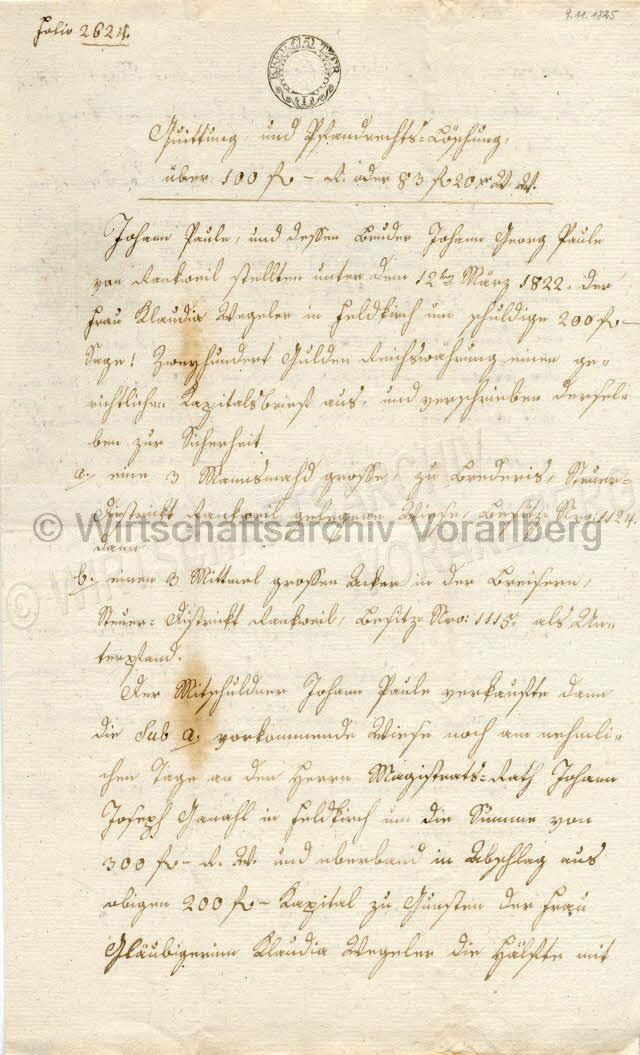 Folio 2624.
9.11.1825
Quittung und Pfandrechts=Löschung,
über 100 f – R. oder 83 f 20 x W. W.
Johann Paule, und dessen Bruder Johann Georg Paule
von Rankweil stellten unter dem 12ten März 1822. der
Frau Klaudia Wegeler in Feldkirch um schuldige 200 f –
Sage! Zweyhundert Gulden Reichswährung einen ge=
richtlichen Kapitalsbrief aus, und verschrieben dersel=
ben zur Sicherheit
a. eine 3 Mannsmahd grosse, zu Brederis, Steuer=
Distrikt Rankweil gelegenen Wiese, Besitz=Nro: 1124.
dann
b. einen 3 Mittmel grossen Acker in der Breisern,
Steuer=Distrikt Rankweil, Besitz=Nro: 1115. als Un=
terpfand.
Der Mitschuldner Johann Paule verkaufte dann
die sub a. vorkommende Wiese noch am nehmli=
chen Tage an den Herrn Magistrats=Rath Johann
Joseph Ganahl in Feldkirch um die Summe von
300 f – R. W. und überband in Abschlag aus
obigen 200 f – Kapital zu Gunsten der Frau
Gläubigerinn Klaudia Wegeler die Hälfte mit
© Wirtschaftsarchiv Vorarlberg